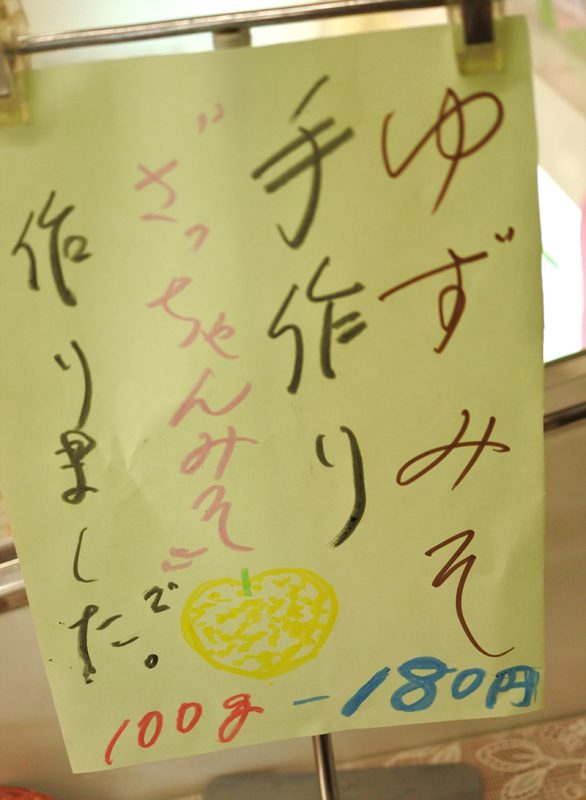 ゆずみそ
手作り
"さっちゃんみそ"で
作りました。
100g－180円